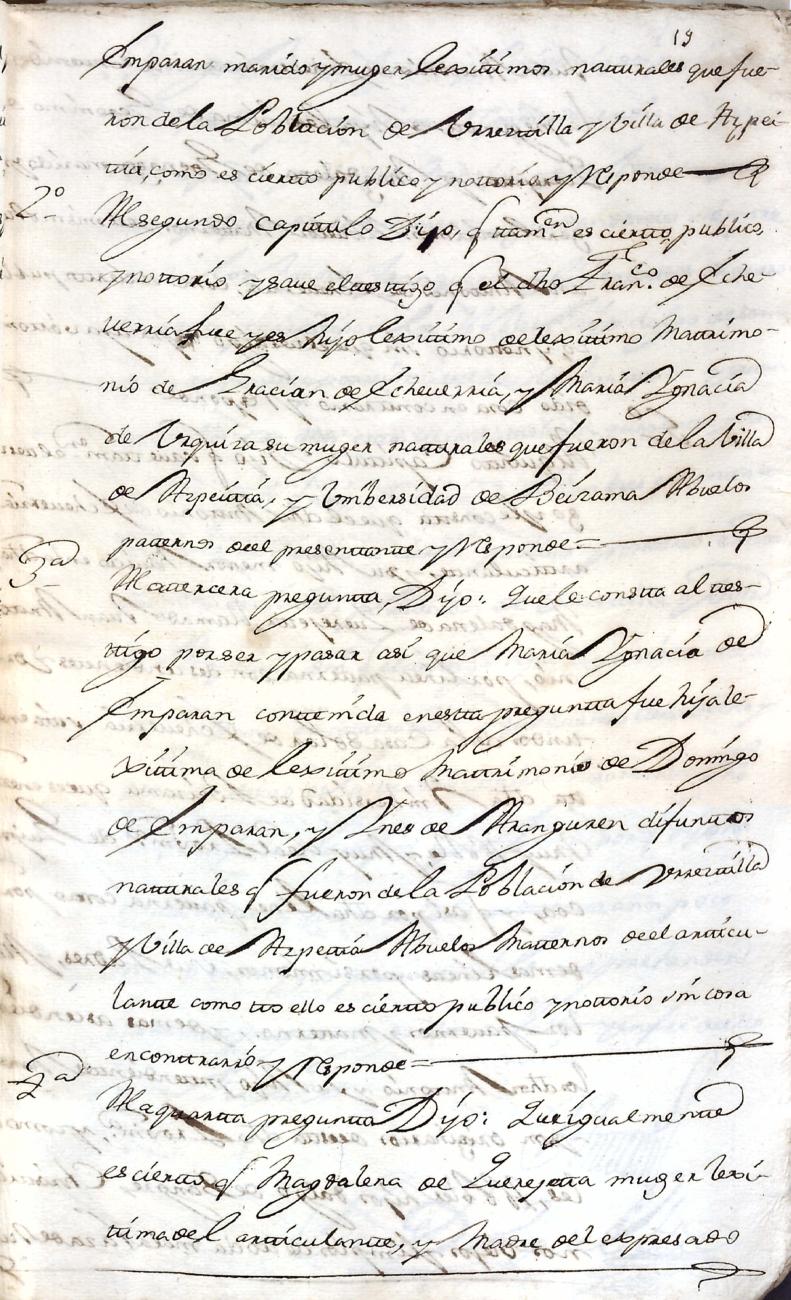 19
Emparan marido y muger lexitimos natturales que fue-
ron de la Poblacion de Vrrestilla y Villa de Azpei-
ttia, como es ciertto publico y nottorio, y Responde
2º
Al segundo capittulo Dijo, q ttamen es ciertto, publico,
y nottorio y save el testtigo q el dho Franco. de Eche-
verria fue y es hijo lexittimo de lexittimo Mattrimo-
nio de Gracian de Echeverria, y Maria Ygnacia
de Vrquiza su muger natturales que fueron de la Villa
de Azpeittia, y Vnibersidad de Beizama Abuelos
patternos de el presenttante y Responde =
3a
A la ttercera pregunta, Dijo: Que le constta al ttes-
ttigo por ser y pasar asi que Maria Ygnacia de
Emparan conttenida en estta pregunta fue hija le-
xittima de lexittimo Mattrimonio de Domingo
de Emparan, y Ynes de Aranguren difunttos
natturales q fueron de la Poblacion de Vrrestilla
y Villa de Azpeittia Abuelos Matternos de el articu-
lante como tto ello es ciertto publico y nottorio sin cosa
en conttrario y Responde =
4a
A la quartta pregunta Dijo: Que igualmente
es ciertto q Magdalena de Querejetta muger lexi-
tima del articulante, y Madre del expresado